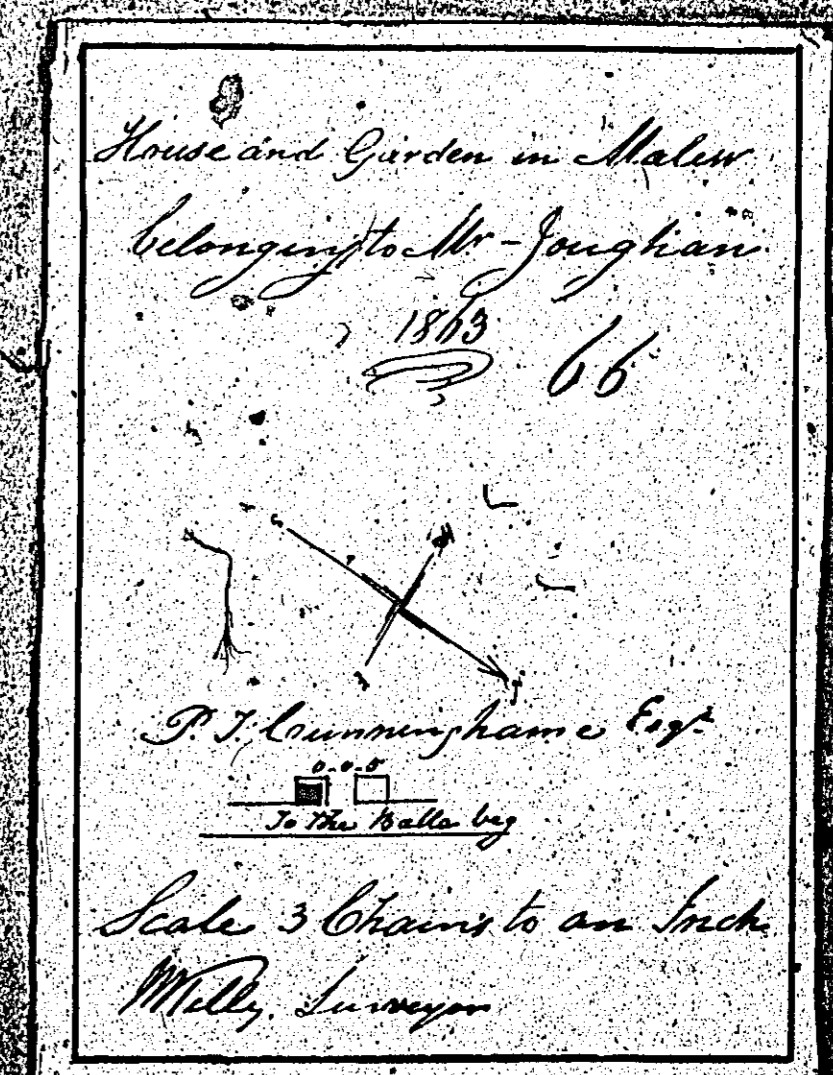 House and Garden in Malew
belonging to Mr - Joughan
1863
66
P. T. Cunninghame Esqr
0.0.5
To the Balla beg
Scale 3 Chains to an Inch
Surveyor